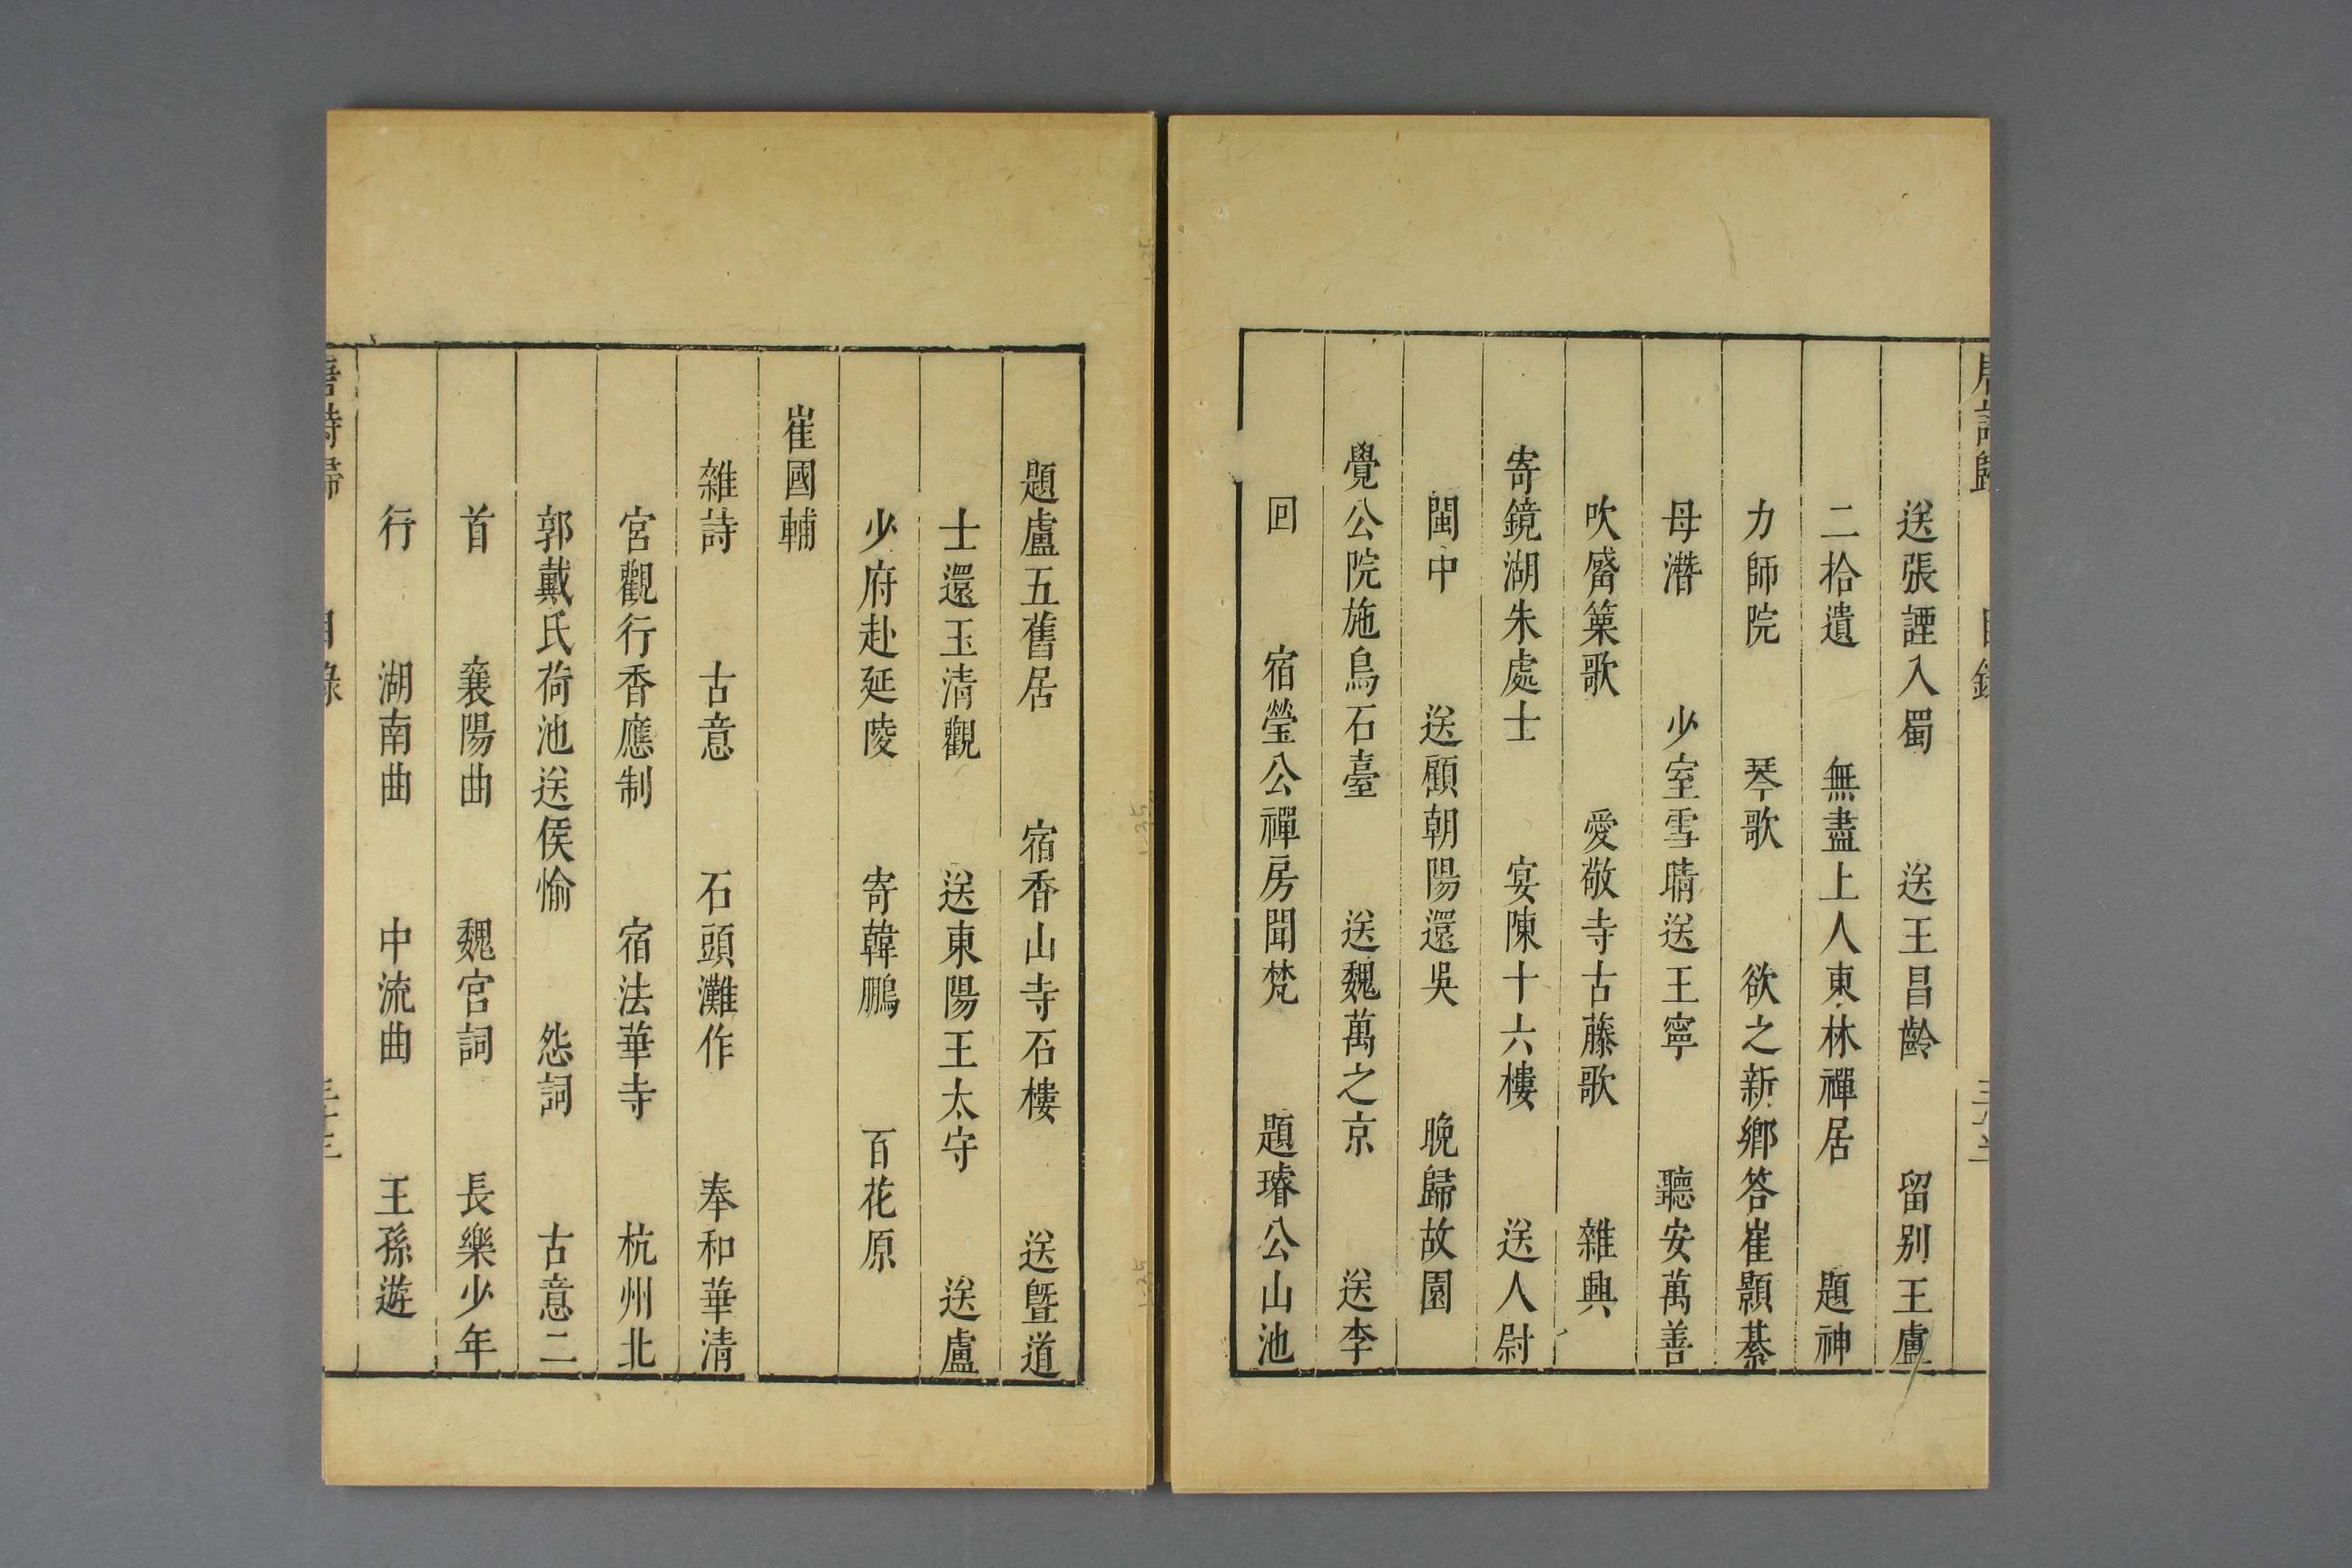 唐詩歸 目錄
送張諲入蜀 送王昌齡 留別王盧
二拾遺 無盡上人東林禪居 題神
力師院 琴歌 欲之新鄉答崔顥綦
母潛 少室雪晴送王寧 聽安萬善
吹觱篥歌 愛敬寺古藤歌 雜興
寄鏡湖朱處士 宴陳十六樓 送人尉
閩中 送顧朝陽還吳 晚歸故園
覺公院施鳥石臺 送魏萬之京 送李
回 宿瑩公禪房聞梵 題璿公山池
題盧五舊居 宿香山寺石樓 送暨道
士還玉清觀 送東陽王太守 送盧
少府赴延陵 寄韓鵬 百花原
崔國輔
雜詩 古意 石頭灘作 奉和華清
宮觀行香應制 宿法華寺 杭州北
郭戴氏荷池送侯愉 怨詞 古意二
首 襄陽曲 魏宮詞 長樂少年
行 湖南曲 中流曲 王孫遊
唐詩歸 目錄